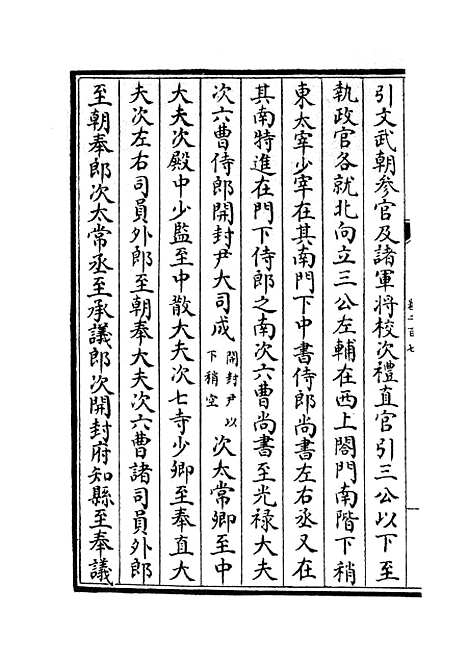 引文武朝參官及諸軍將校次禮直官引三公以下至
執政官各就北向立三公左輔在西上閤門南階下稍
東太宰少宰在其南門下中書侍郎尚書左右丞又在
其南特進在門下侍郎之南次六曹尚書至光禄大夫
次六曹侍郎開封尹大司成開封尹以下稍空次太常卿至中
大夫次殿中少監至中散大夫次七寺少卿至奉直大
夫次左右司員外郎至朝奉大夫次六曹諸司員外郎
至朝奉郎次太常丞至承議郎次開封府知縣至奉議